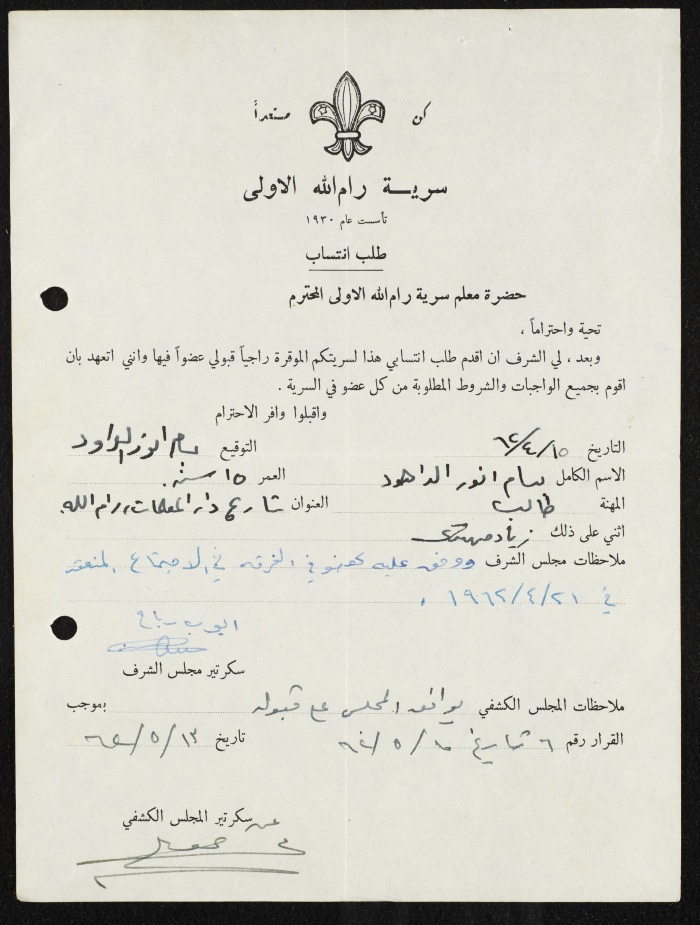 كن مستعداً
سرية رام الله الاولى
تأسست عام ١٩٣٠
طلب انتساب
حضرة معلم سرية رام الله الاولى المحترم
تحية واحتراماً ،
وبعد ، لي الشرف ان اقدم طلب انتسابي هذا لسريتكم الموقرة راجياً قبولي عضواً فيها وانني اتعهد بان
اقوم بجميع الواجبات والشروط المطلوبة من كل عضو في السرية .
واقبلوا وافر الاحترام
التاريخ ٦٢/٤/١٥ التوقيع
الاسم الكامل بسام انور العمر ١٥ سنة
المهنة طالب العنوان شارع دار المعلمات، رام الله
اثني على ذلك زياد
ملاحظات مجلس الشرف ووفق عليه كعضو في الفرقه في الاجتماع المنعقد
في ١٩٦٢/٤/٢١ .
ايوب رباح
سكرتير مجلس الشرف
ملاحظات المجلس الكشفي يوافق المجلس على قبوله بموجب
القرار رقم ٦ تاريخ تاريخ
عن سكرتير المجلس الكشفي